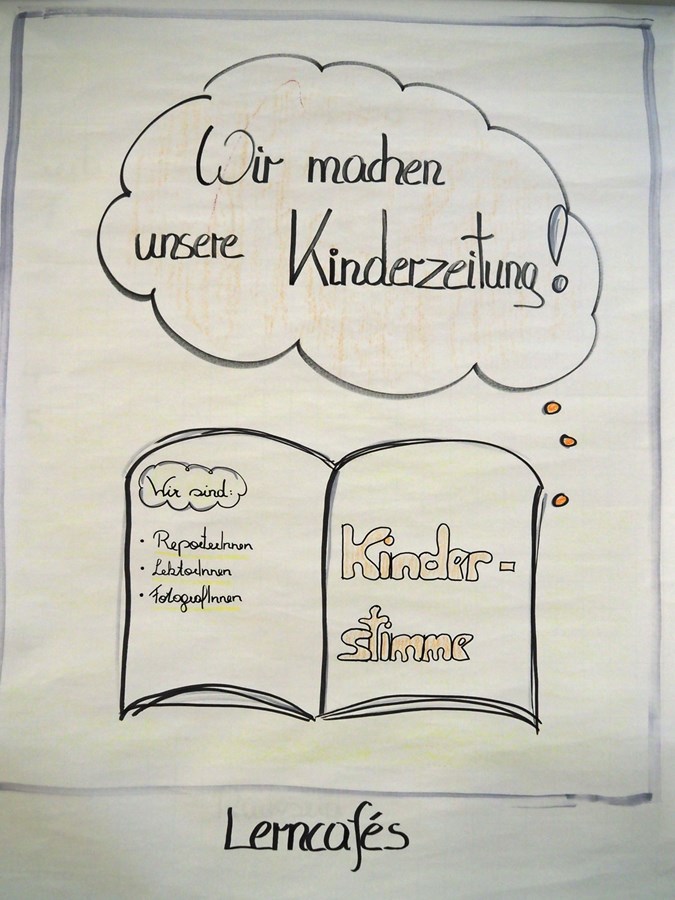 Wir machen
unsere Kinderzeitung!
Wir sind:
• ReporterInnen
• LektorInnen
• FotografInnen
Kinder-
stimme
Lerncafés